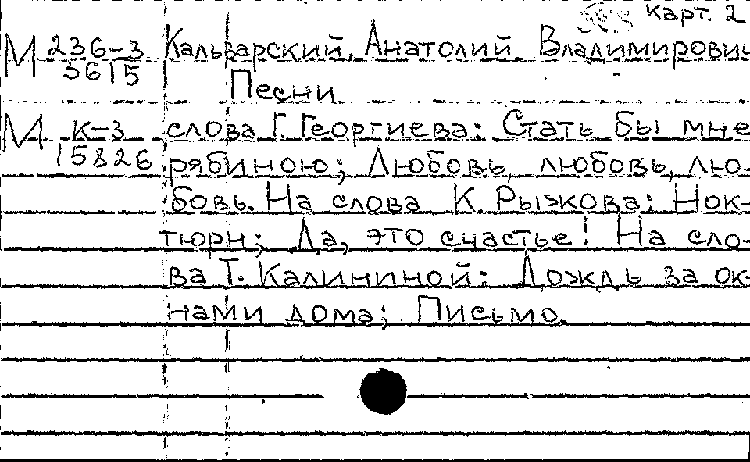 карт. 2
М 236-3/3615 Кальварский, Анатолий Владимирович
Песни
М К-3/15826 слова Г. Георгиева: Стать бы мне
рябиною; Любовь, любовь, лю-
бовь. На слова К. Рыжова: Нок-
тюрн; Да, это счастье! На сло-
ва Т. Калининой: Дождь за ок-
нами дома; Письмо.